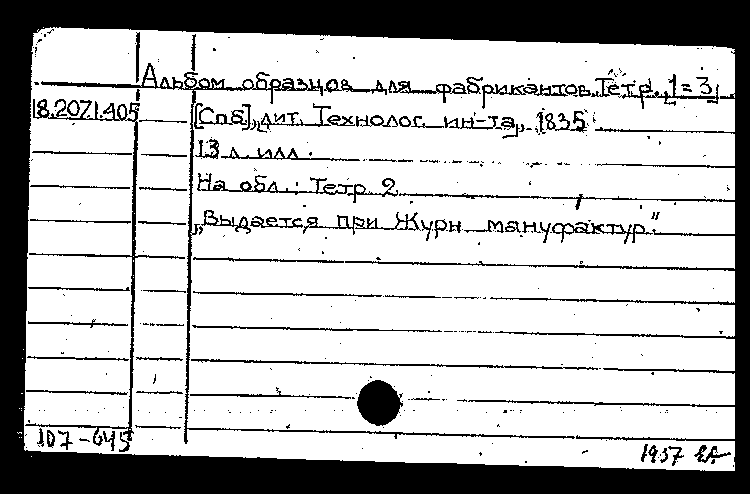 Альбом образцов для фабрикантов. Тетр. [1=3].
18.207.1.405 [Спб], лит. Технолог. ин-та, 1835.
13 л. илл.
На обл.: Тетр 2
„Выдается при Журн. мануфактур."
107-645
1957